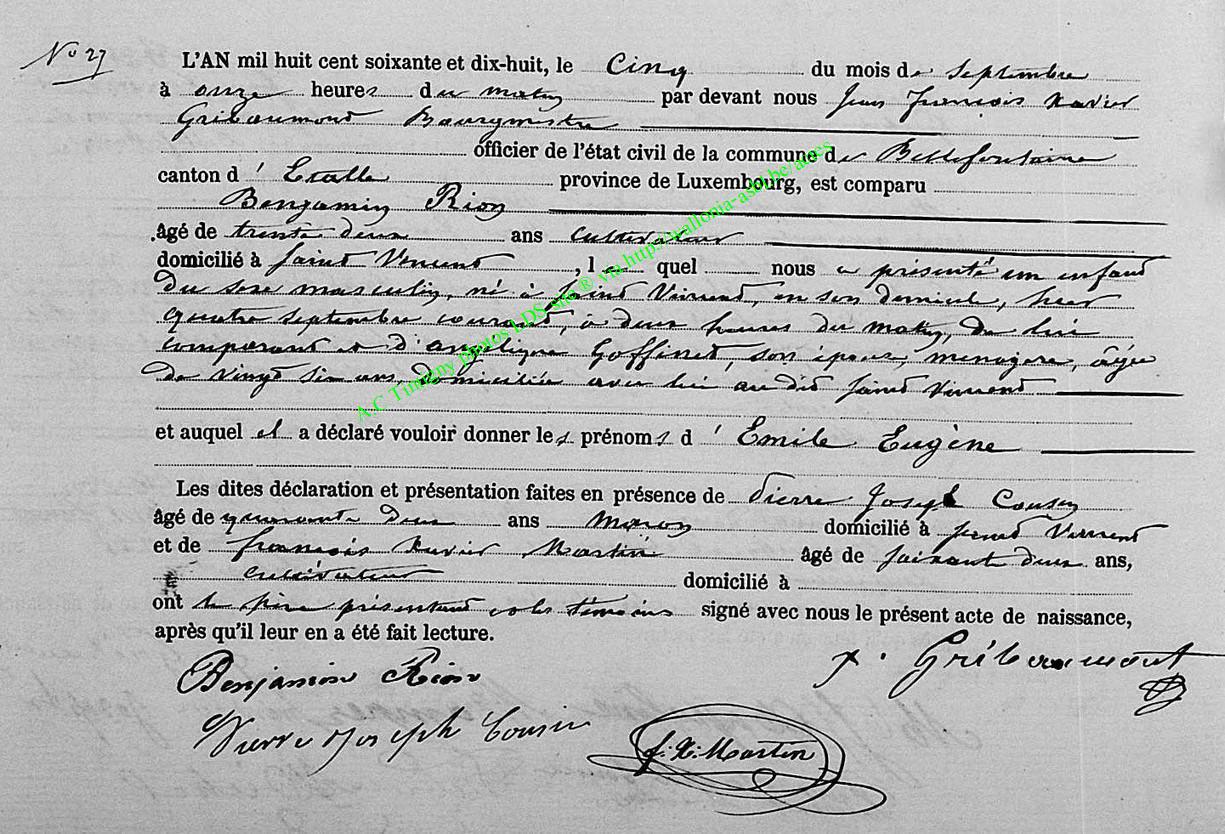 No 27
L'AN mil huit cent soixante et dix-huit, le Cinq du mois de Septembre
à onze heures du matin par devant nous Jean François Xavier
Gribaumont Bourgmestre
officier de l'état civil de la commune de Bellefontaine
canton d'Etalle province de Luxembourg, est comparu
Benjamin Rion
âgé de trente deux ans cultivateur
domicilié à Saint Vincent, lequel nous a présenté un enfant
du sexe masculin, né à Saint Vincent, en son domicile, hier
quatre septembre courant, à deux heures du matin, de lui
comparant et d'Angélique Goffinet, son épouse, ménagère, âgée
de vingt six ans, domiciliée avec lui au dit Saint Vincent
et auquel il a déclaré vouloir donner les prénoms d'Emile Eugène
Les dites déclaration et présentation faites en présence de Pierre Joseph Cousin
âgé de quarante deux ans maçon domicilié à Saint Vincent
et de François Xavier Martin âgé de soixante deux ans,
cultivateur domicilié à
ont le père présentant et les témoins signé avec nous le présent acte de naissance,
après qu'il leur en a été fait lecture.
Benjamin Rion
X. Gribaumont
Pierre Joseph Cousin
f. X. Martin
A.C Timigny photos LDS-site ® via http://wallonia-asbl.be/actes